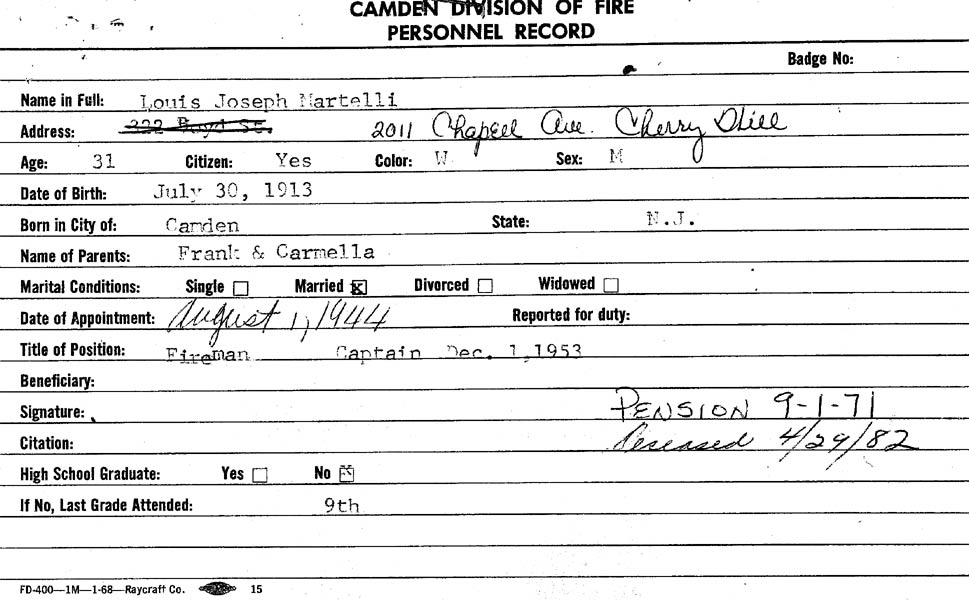 CAMDEN DIVISION OF FIRE
PERSONNEL RECORD
Badge No:
Name in Full: Louis Joseph Martelli
Address: 322 Boyd St. 2011 Chapel Ave. Cherry Hill
Age: 31 Citizen: Yes Color: W Sex: M
Date of Birth: July 30, 1913
Born in City of: Camden State: N.J.
Name of Parents: Frank & Carmella
Marital Conditions: Single ☐ Married ☒ Divorced ☐ Widowed ☐
Date of Appointment: August 1, 1944 Reported for duty:
Title of Position: Fireman Captain Dec. 1,1953
Beneficiary:
Signature: PENSION 9-1-71
Citation: Deseased 4/29/82
High School Graduate: Yes ☐ No ☒
If No, Last Grade Attended: 9th
FD-400—1M—1-68—Raycraft Co. 15